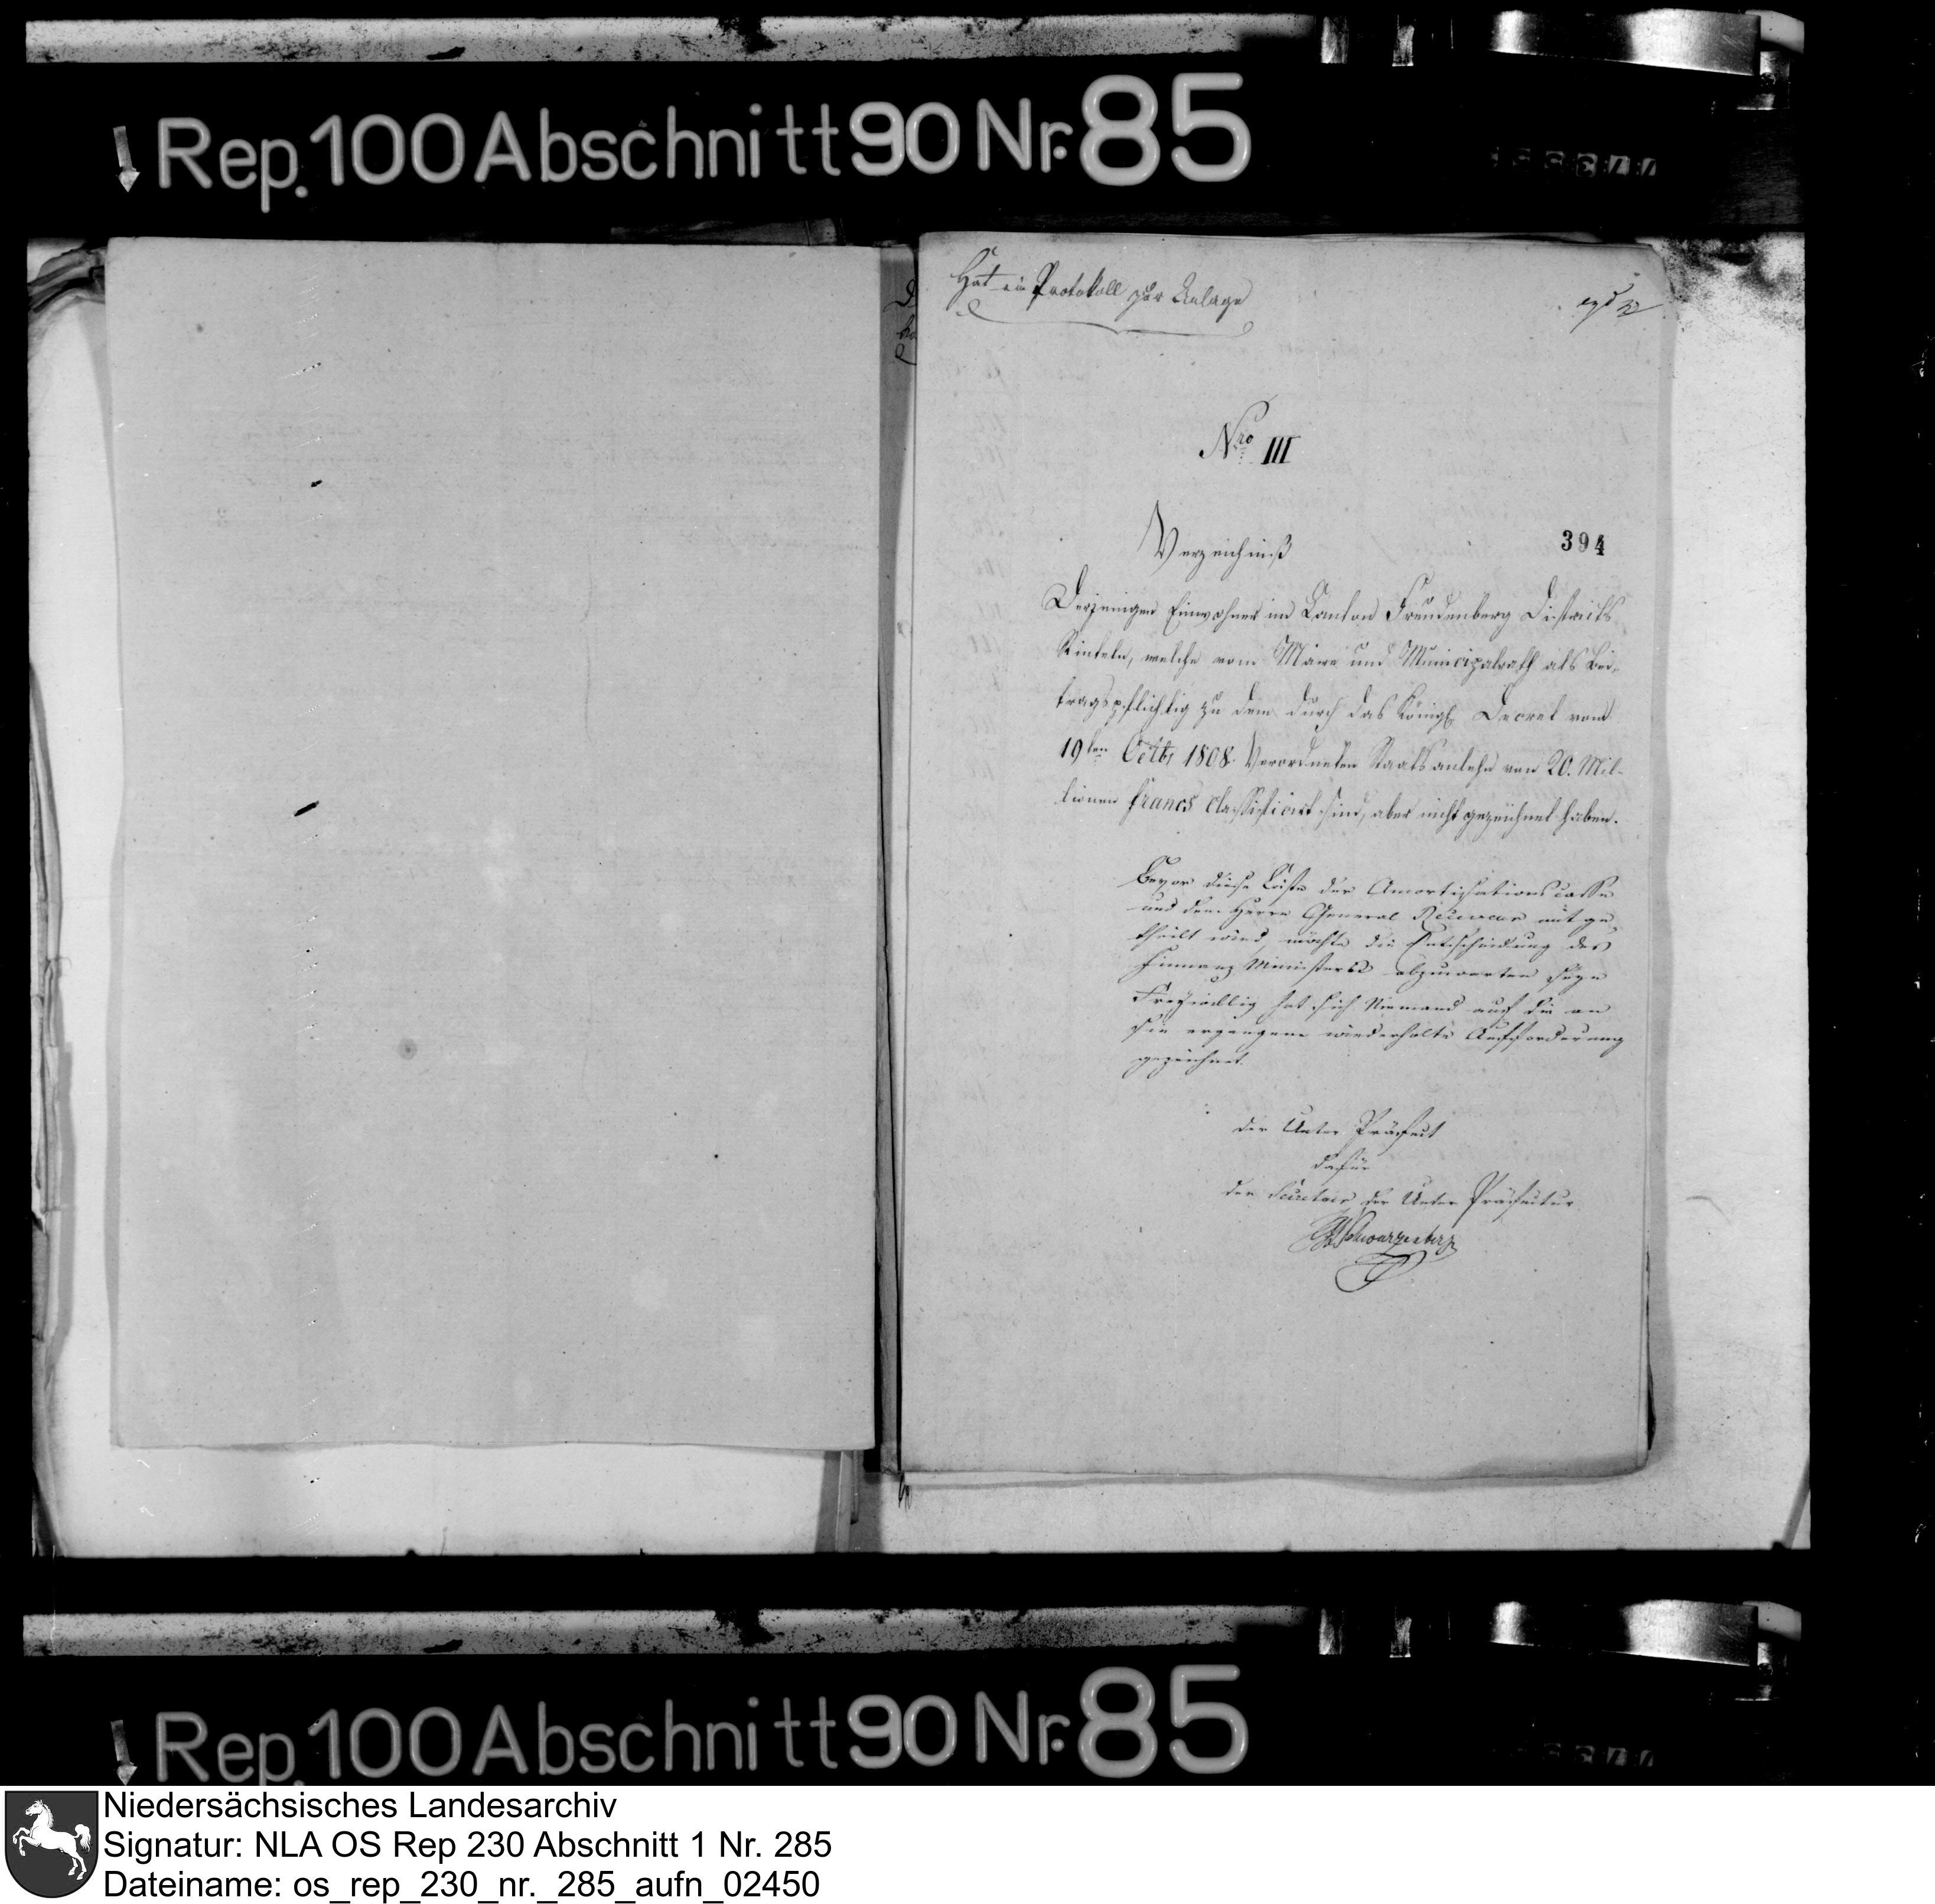 Rep. 100 Abschnitt 90 Nr. 85
Hat ein Protokoll zur Anlage
Nro III
394
Verzeichniß
Derjenigen Einwohner im Canton Freudenberg Districts
Rinteln, welche vom Maire und Municipalrath als bei-
tragspflichtig zu dem durch das Königl. Decret vom
19ten Octbr 1808 verordneten Staatsanlehn von 20. Mil-
lionen francs classificirt sind, aber nicht gezeichnet haben.
Bevor diese Liste der Amortisationscasse
und dem Herrn General Receveur mit ge-
theilt wird, möchte die Entscheidung des
Finanz Ministers abzuwarten seyn
Freywillig hat sich Niemand auf die an
sie ergangene wiederholte Aufforderung
gezeichnet.
der Unter Präfect
dafür
der Secretair der Unter Präfectur
Rep. 100 Abschnitt 90 Nr. 85
Niedersächsisches Landesarchiv
Signatur: NLA OS Rep 230 Abschnitt 1 Nr. 285
Dateiname: os_rep_230_nr._285_aufn_02450